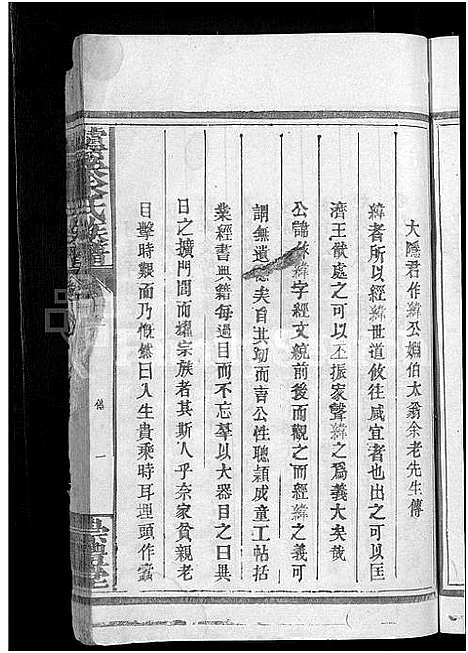 大隱君作緯公姻伯太翁余老先生傳
緯者所以經緯世道攸往咸宜者也出之可以匡
濟王猷處之可以丕振家聲緯之爲義大矣哉
公諱 緯字經文統前後而觀之而經緯之義可
謂無遺 矣自其幼而吉公性聰頴成童工帖括
業經書典籍每過目而不忘羣以大器目之曰異
日之擴門閭而耀宗族者其斯人乎奈家貧親老
目擊時艱而乃慨然曰人生貴乘時耳埋頭作蠹
氏族譜
傳
一